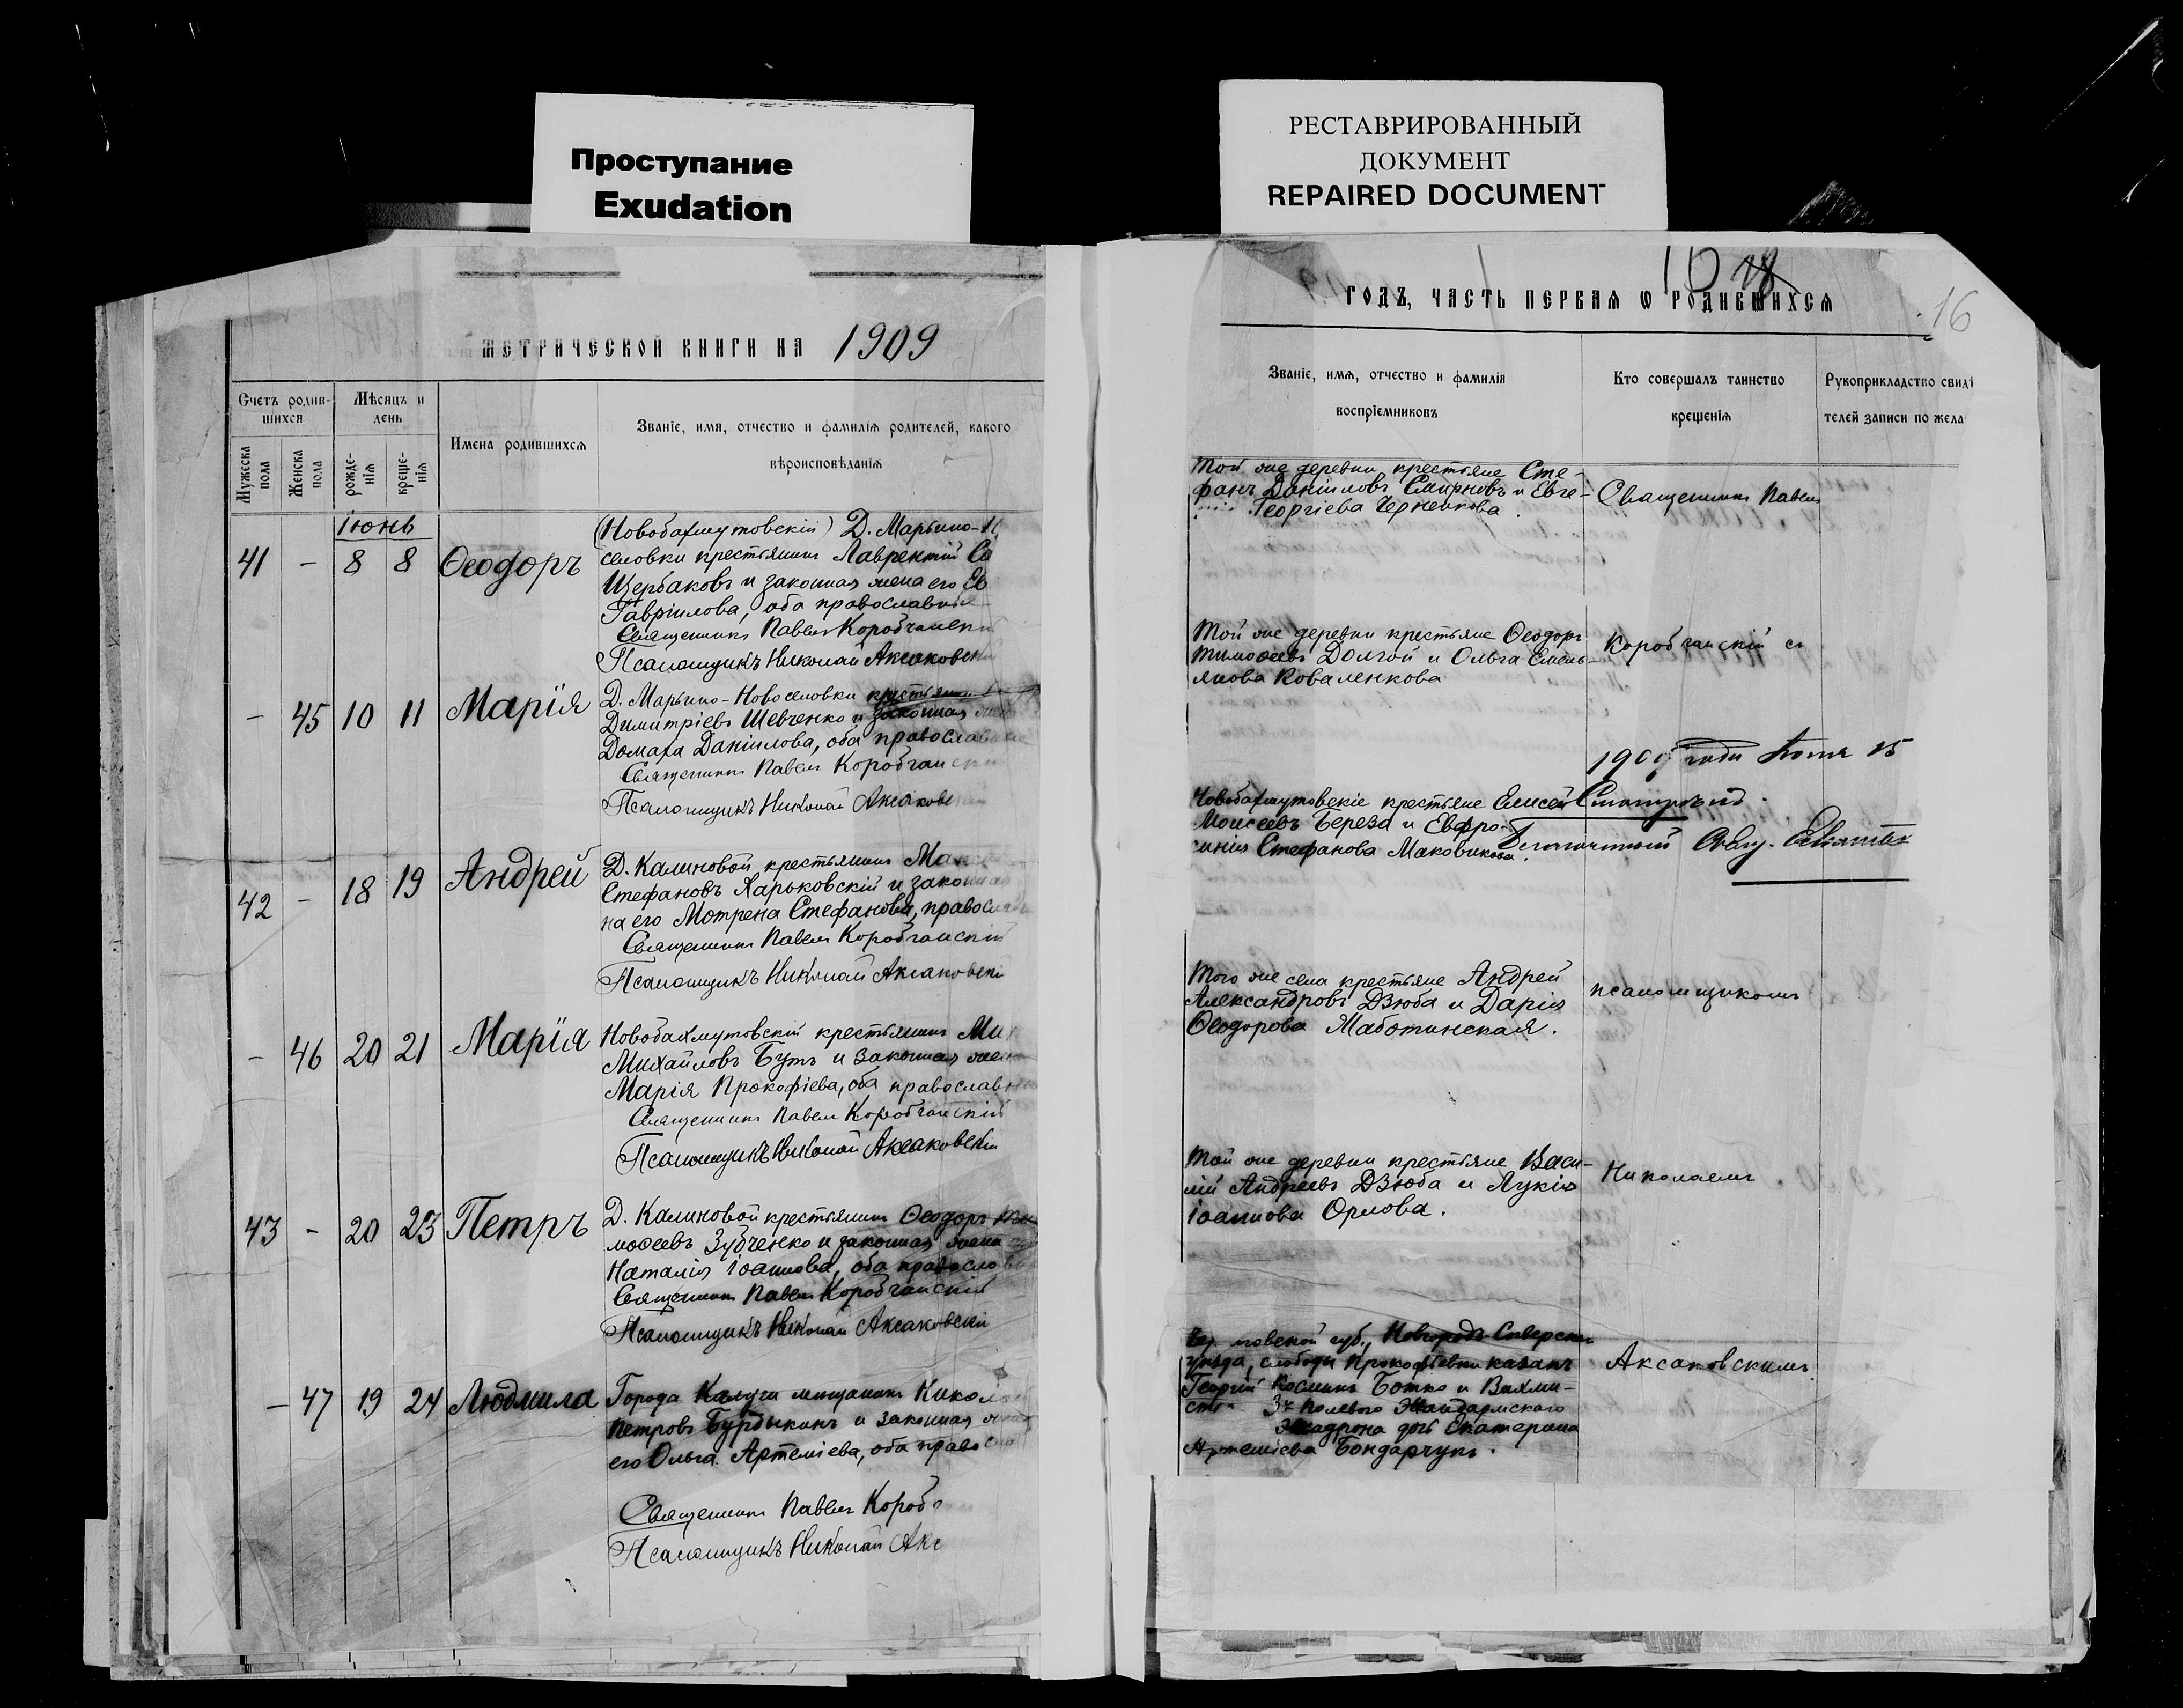 Проступание
Exudation
РЕСТАВРИРОВАННЫЙ
ДОКУМЕНТ
REPAIRED DOCUMENT
МЕТРИЧЕСКОЙ КНИГИ НА 1909
Счетъ родив-
шихся
Мѣсяцъ и
день
Мужеска
пола
Женска
пола
рожде-
нія
креще-
нія
Имена родившихся
Званіе, имя, отчество и фамилія родителей, какого
вѣроисповѣданія
Іюнь
41 - 8 8 Ѳеодоръ
(Новобахмутовскій) Д. Марьино-
селовки крестьянинъ Лаврентій
Щербаковъ и законная жена его
Гавріилова, оба православные
Священникъ Павелъ Коробчанскій
Псаломщикъ Николай Аксаковскій
- 45 10 11 Марія
Д. Марьино-Новоселовки крестьянинъ
Димитріевъ Шевченко и законная жена
Домаха Даніилова, оба православные
Священникъ Павелъ Коробчанскій
Псаломщикъ Николай Аксаковскій
42 - 18 19 Андрей
Д. Калиновой крестьянинъ
Стефановъ Харьковскій и законная
на его Мотрена Стефанова, православ
Священникъ Павелъ Коробчанскій
Псаломщикъ Николай Аксаковскій
- 46 20 21 Марія
Новобахмутовскій крестьянинъ
Михайловъ Бутъ и законная жена
Марія Прокофіева, оба православные
Священникъ Павелъ Коробчанскій
Псаломщикъ Николай Аксаковскій
43 - 20 23 Петръ
Д. Калиновой крестьянинъ Ѳеодоръ Ти
моѳеевъ Зубченко и законная жена
Наталія Іоаннова, оба православ
Священникъ Павелъ Коробчанскій
Псаломщикъ Николай Аксаковскій
- 47 19 24 Людмила
Города Калуги мѣщанинъ Никола
Петровъ Бурдыкинъ и законная жена
его Ольга Артеміева, оба правос
Священникъ Павелъ Короб
Псаломщикъ Николай Акс
ГОДЪ, ЧАСТЬ ПЕРВАЯ Ѡ РОДИВШИХСЯ
16
Званіе, имя, отчество и фамилія
воспріемниковъ
Кто совершалъ таинство
крещенія
Рукоприкладство свидѣ
телей записи по жела
Той же деревни крестьяне Сте-
фанъ Даніиловъ Смирновъ и Евге-
Георгіева Черненкова.
Священникъ Павелъ
Той же деревни крестьяне Ѳеодоръ
Тимоѳеевъ Долгой и Ольга Емель-
янова Коваленкова
Коробчанскій съ
1909 года Іюня 15
Новобахмутовскіе крестьяне Елисей
Моисеевъ Береза и Евфро-
синія Стефанова Маковикова.
Смотрѣлъ
Благочинный
Того же села крестьяне Андрей
Александровъ Дзюба и Дарія
Ѳеодорова Маботинская.
псаломщикомъ
Той же деревни крестьяне Васи-
лій Андреевъ Дзюба и Лукія
Іоаннова Орлова.
Николаемъ
губ., Новгородъ-Сѣверскаго
уѣзда, слободы Прокофіевки казакъ
Георгій Косминъ Ботко и Вахми-
3го Полевого Жандармскаго
Эскадрона дочь Екатерина
Артеміева Бондарчукъ.
Аксаковскимъ.